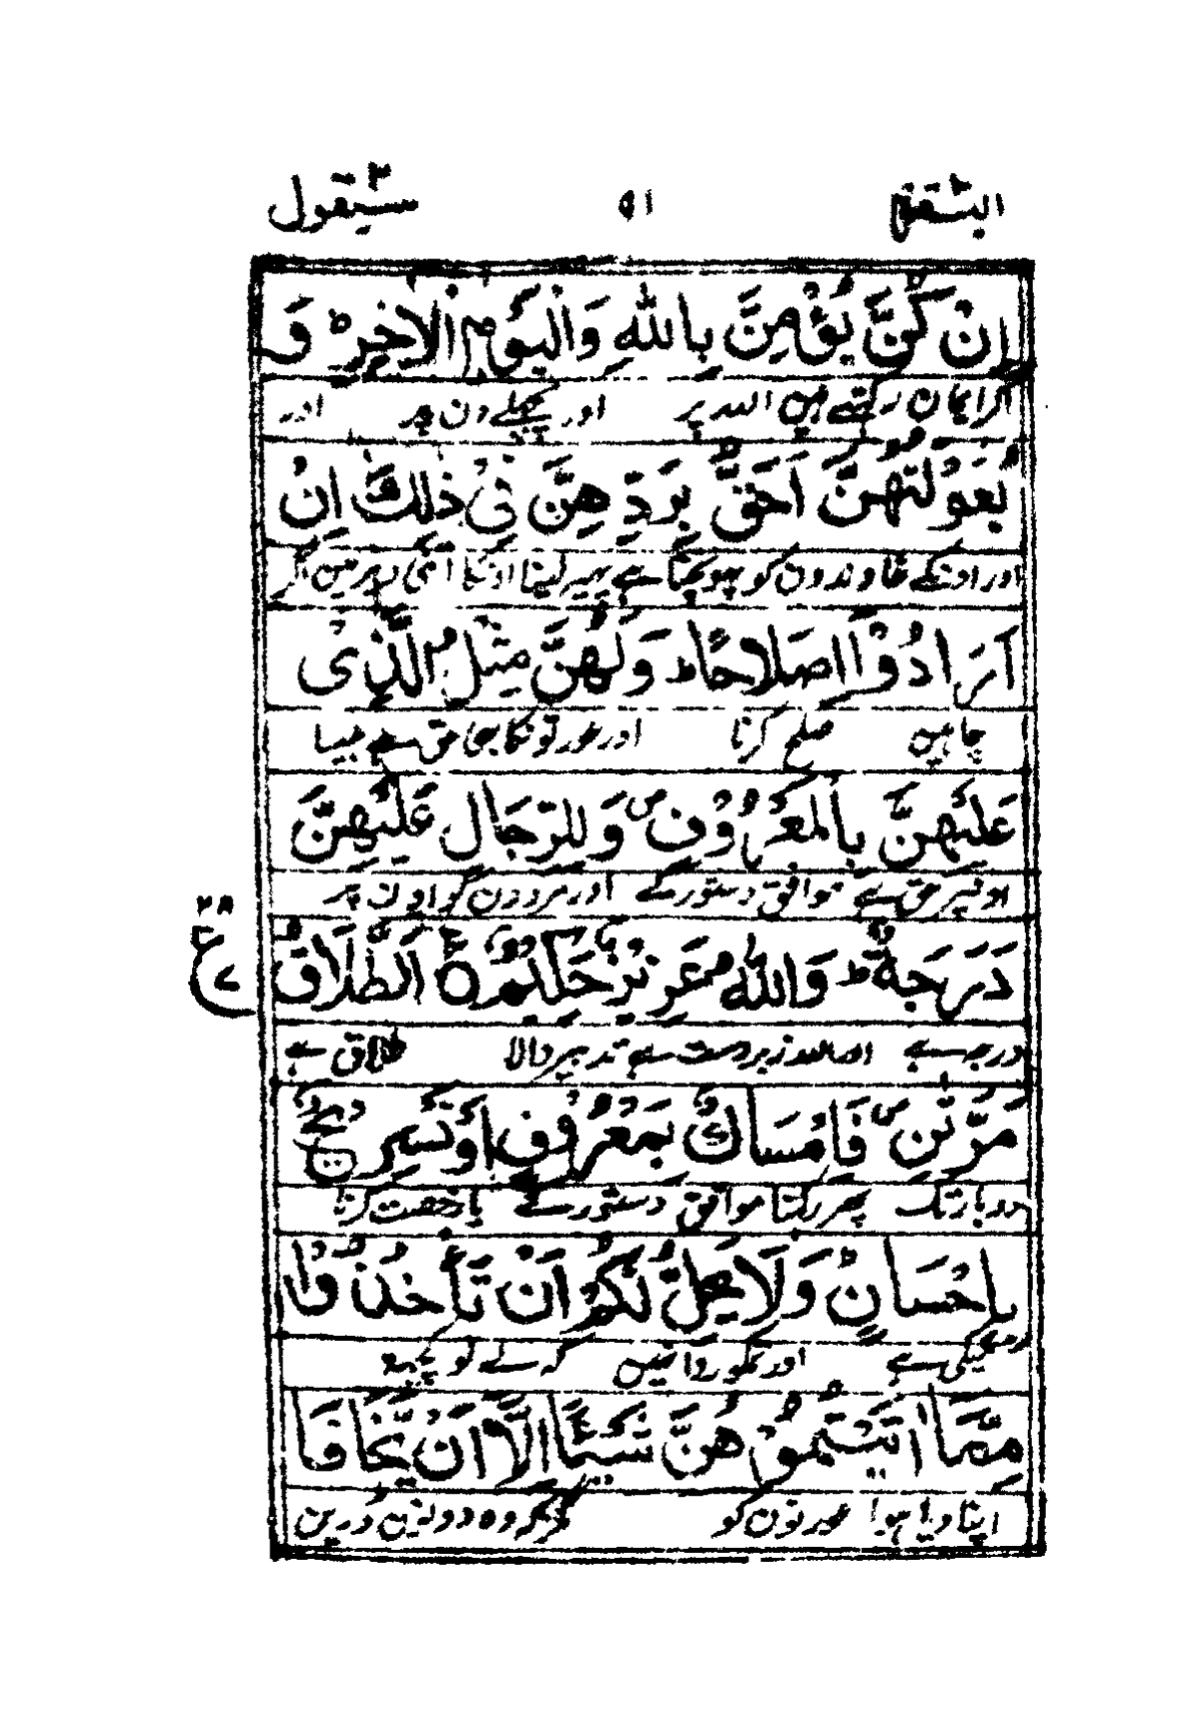 البقرة ٢ ٥١ سيقول ٢
اِنْ كُنَّ يُؤْمِنَّ بِاللّٰهِ وَالْيَوْمِ الْاٰخِرِ ط وَ
اگر ایمان رکھتے ہیں اللہ پر اور پچھلے دن پر اور
بُعُوْلَتُهُنَّ اَحَقُّ بِرَدِّهِنَّ فِيْ ذٰلِكَ اِنْ
اور اونکے خاوندون کو پہونچتا ہے پھیر لینا اونکا اس دیر مین اگر
اَرَادُوْٓا اِصْلَاحًا ط وَلَهُنَّ مِثْلُ الَّذِيْ
چاہین صلح کرنا اور عورتونکا بھی حق ہے جیسا
عَلَيْهِنَّ بِالْمَعْرُوْفِ ص وَلِلرِّجَالِ عَلَيْهِنَّ
اونپر حق ہے موافق دستور کے اور مردون کو اون پر
دَرَجَةٌ ط وَاللّٰهُ عَزِيْزٌ حَكِيْمٌ ۝ اَلطَّلَاقُ
درجہ ہے اور اللہ زبردست ہے تدبیر والا طلاق ہے
٢٨
ع
٧
مَرَّتٰنِ ص فَاِمْسَاكٌ بِمَعْرُوْفٍ اَوْ تَسْرِيْحٌ
دو بار تک پھر رکھنا موافق دستور کے یا رخصت کرنا
بِاِحْسَانٍ ط وَلَا يَحِلُّ لَكُمْ اَنْ تَاْخُذُوْا
نیکی سے اور تمکو روا نہین کہ لے لو کچھ
مِمَّآ اٰتَيْتُمُوْهُنَّ شَيْئًا اِلَّآ اَنْ يَّخَافَا
اپنا دیا ہوا عورتون کو مگر کہ وہ دونون ڈرین